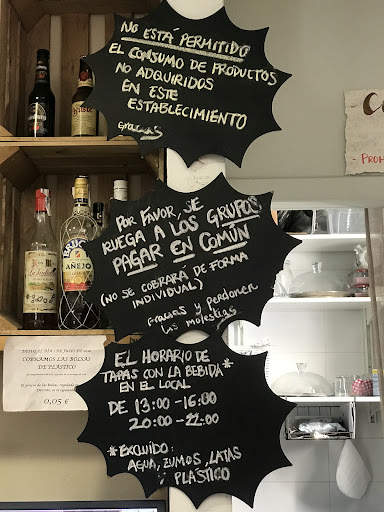 NO ESTÁ PERMITIDO
EL CONSUMO DE PRODUCTOS
NO ADQUIRIDOS
EN ESTE
ESTABLECIMIENTO
Gracias
POR FAVOR, SE
RUEGA A LOS GRUPOS
PAGAR EN COMÚN
(NO SE COBRARÁ DE FORMA
INDIVIDUAL)
Gracias y perdonen
las molestias
EL HORARIO DE
TAPAS CON LA BEBIDA*
EN EL LOCAL
DE 13:00-16:00
20:00-22:00
*EXCLUÍDO:
AGUA, ZUMOS, LATAS
Y PLÁSTICO
COBRAMOS LAS BOLSAS
DE PLÁSTICO
0,05 €
AÑEJO